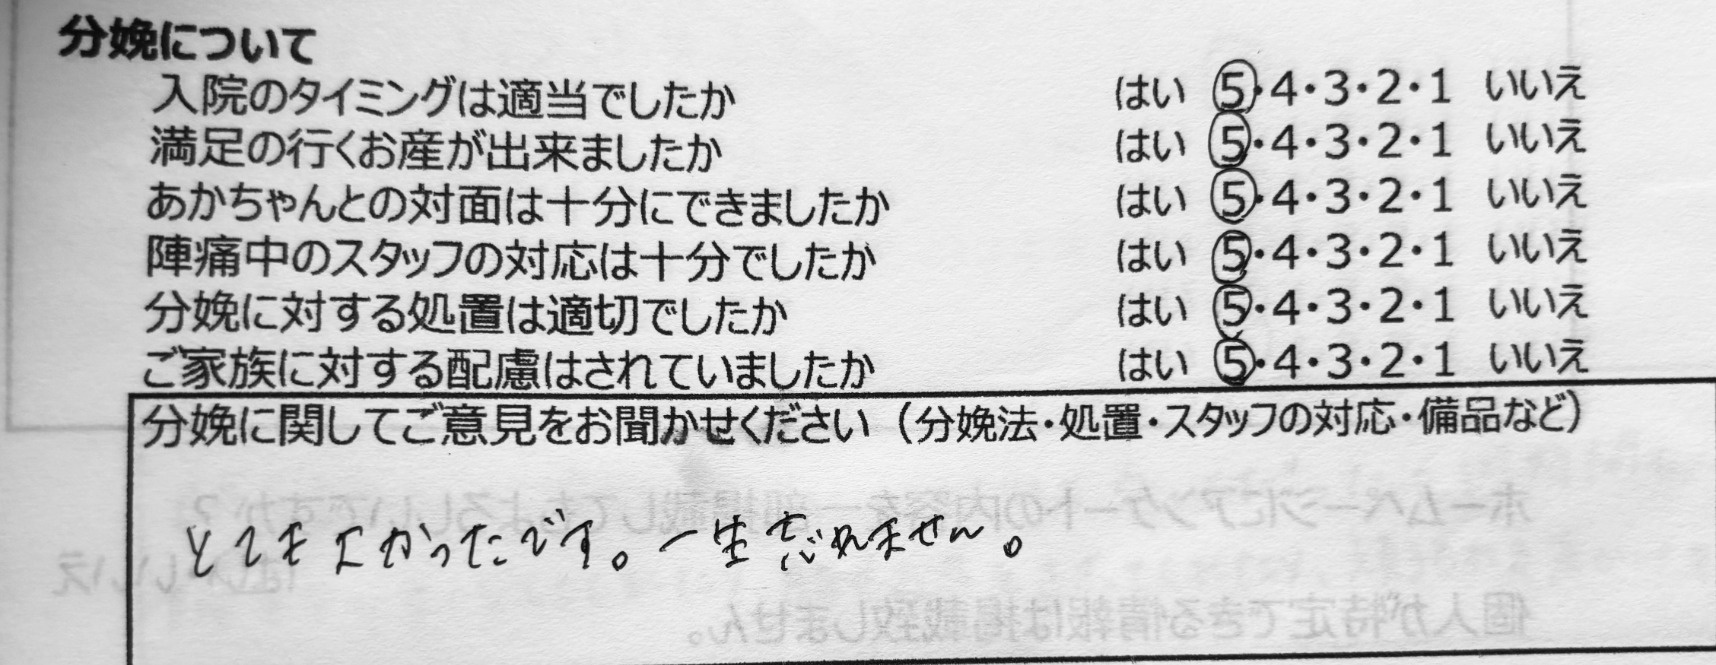 分娩について
入院のタイミングは適当でしたか はい 5・4・3・2・1 いいえ
満足の行くお産が出来ましたか はい 5・4・3・2・1 いいえ
あかちゃんとの対面は十分にできましたか はい 5・4・3・2・1 いいえ
陣痛中のスタッフの対応は十分でしたか はい 5・4・3・2・1 いいえ
分娩に対する処置は適切でしたか はい 5・4・3・2・1 いいえ
ご家族に対する配慮はされていましたか はい 5・4・3・2・1 いいえ
分娩に関してご意見をお聞かせください（分娩法・処置・スタッフの対応・備品など）
ホームページにアンケートの内容を一部掲載してもよろしいですか？
とてもよかったです。一生忘れません。
はい・いいえ
個人が特定できる情報は掲載致しません。